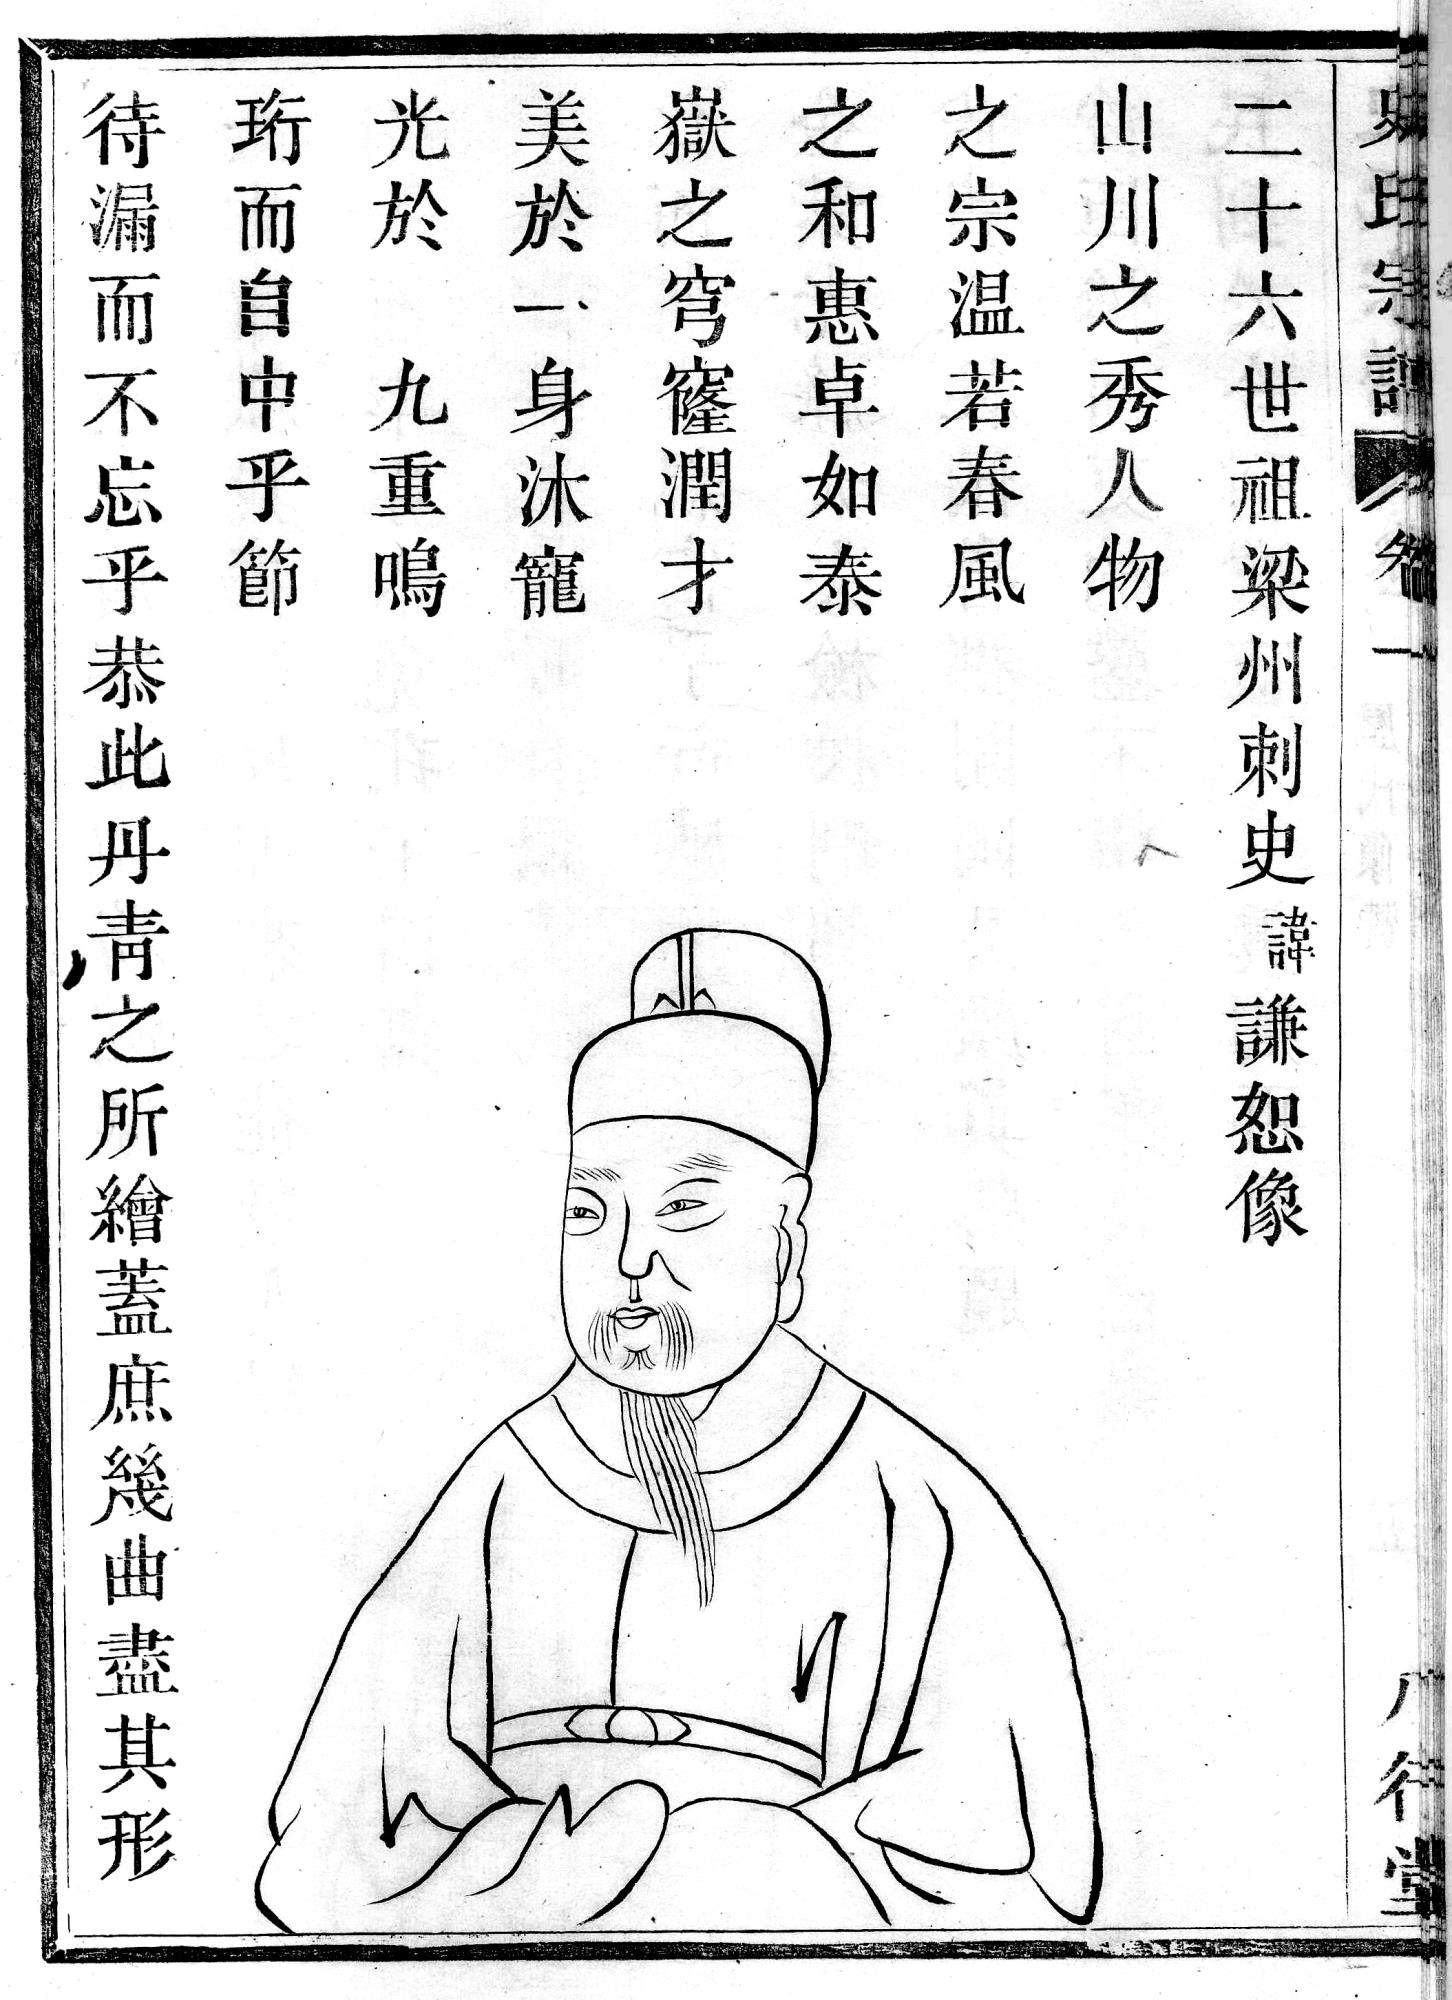 史氏宗譜 卷一 八行堂
二十六世祖梁州刺史諱謙恕像
山川之秀人物
之宗温若春風
之和惠卓如泰
嶽之穹窿潤才
美於一身沐寵
光於 九重鳴
珩而自中乎節
待漏而不忘乎恭此丹青之所繪蓋庶幾曲盡其形